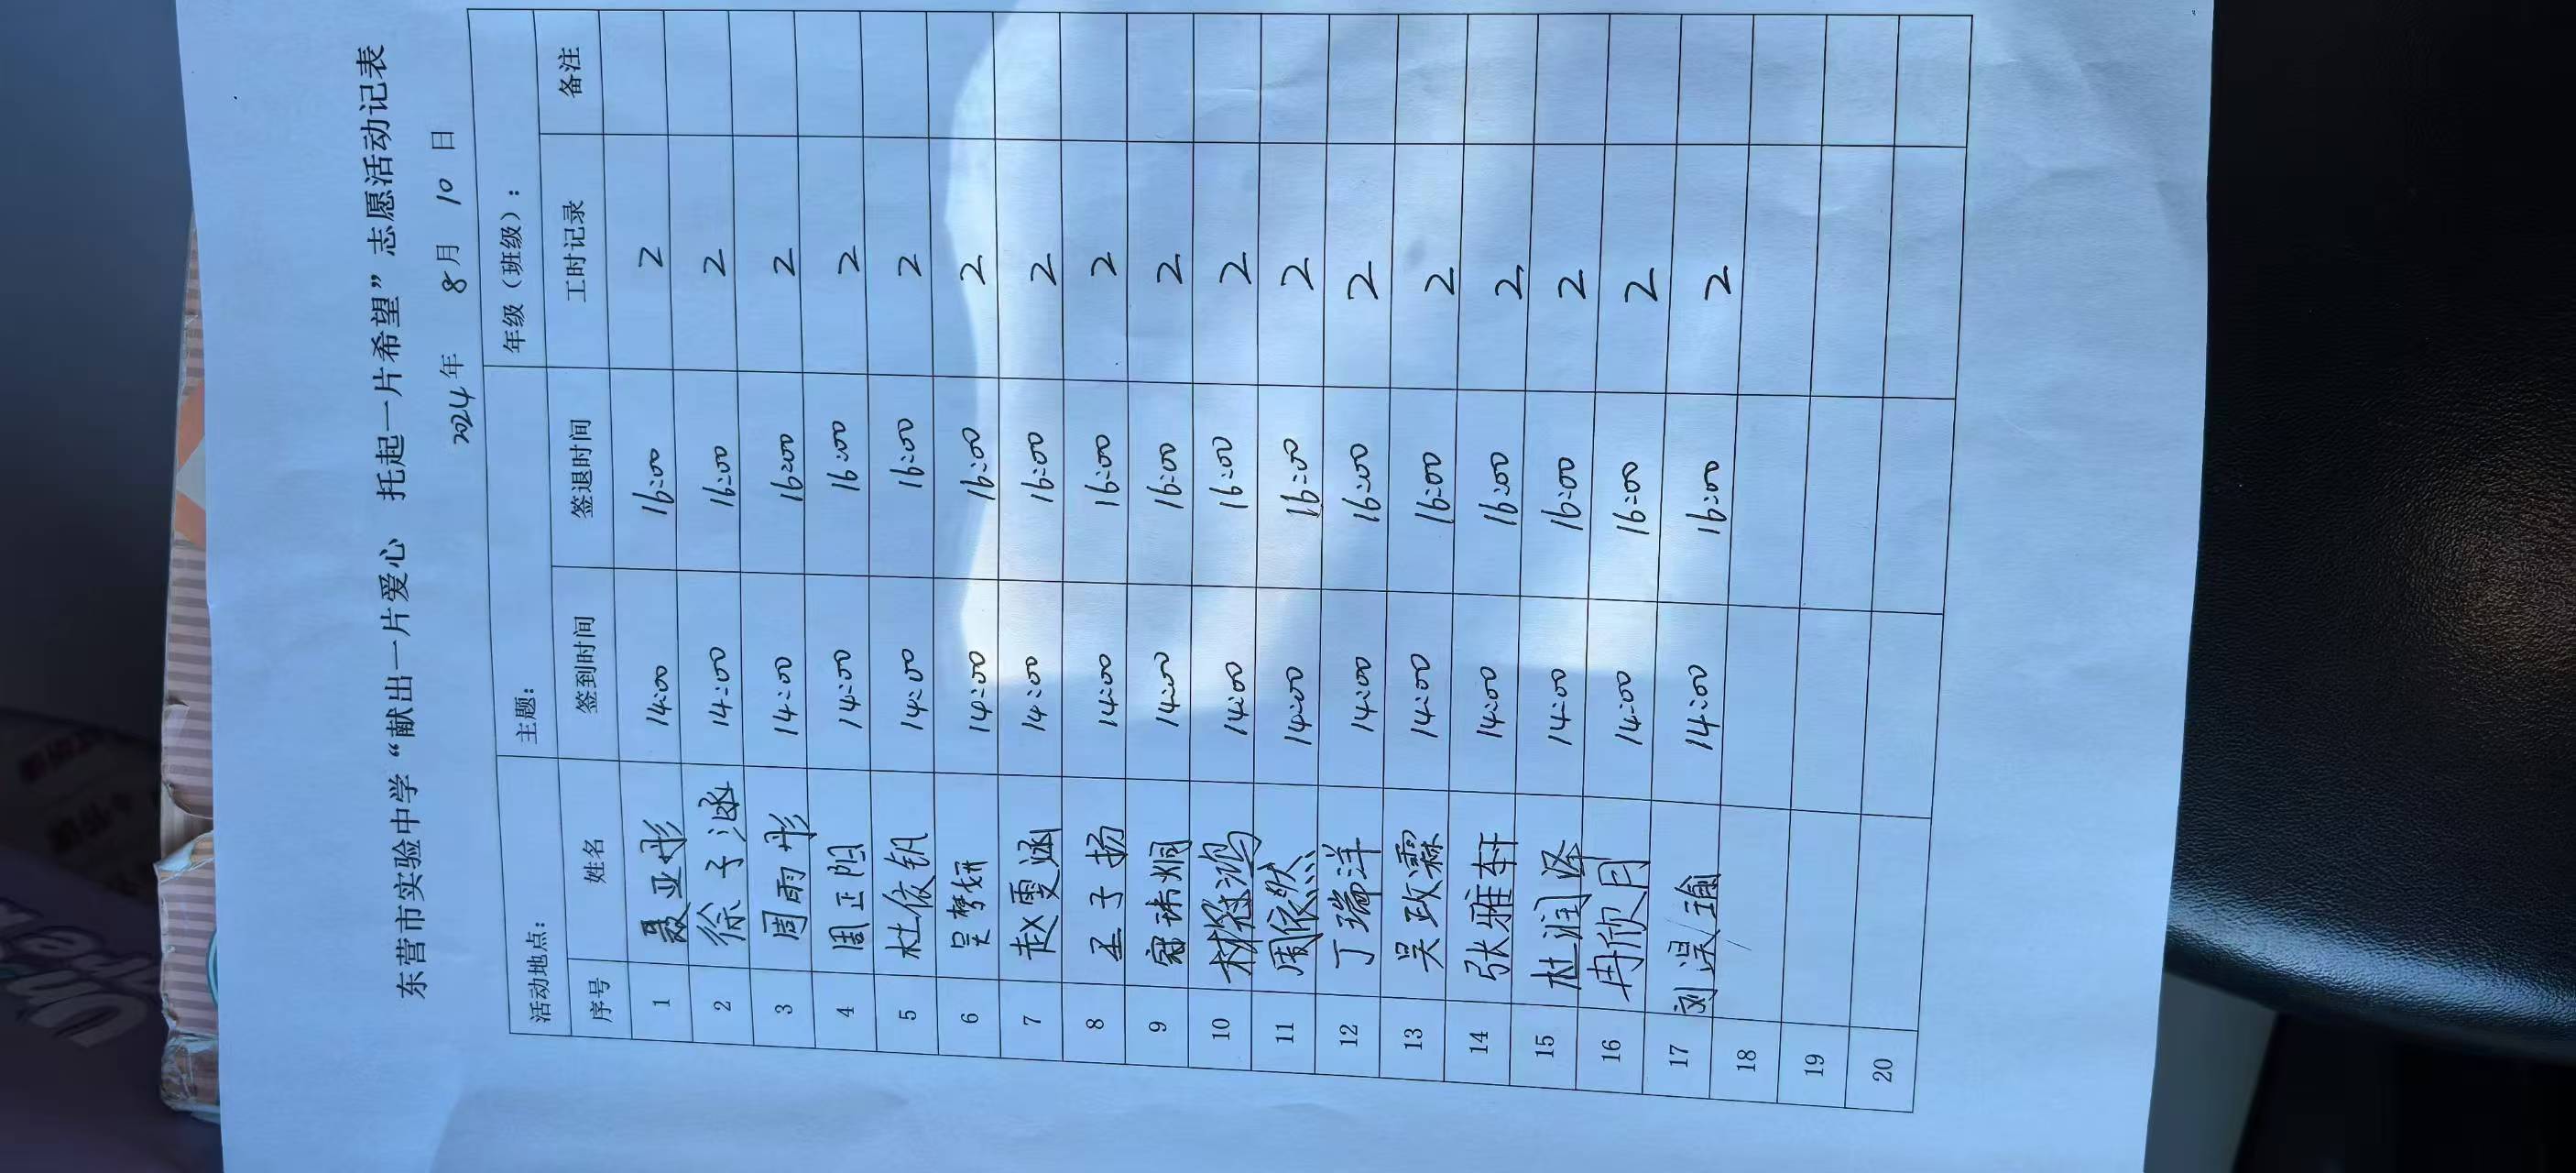 东营市实验中学“献出一片爱心 托起一片希望”志愿活动记表
2024年 8月 10日
活动地点： 主题： 年级（班级）：
序号 姓名 签到时间 签退时间 工时记录 备注
1 聂亚彤 14:00 16:00 2
2 徐子涵 14:00 16:00 2
3 周雨彤 14:00 16:00 2
4 周正阳 14:00 16:00 2
5 杜依钒 14:00 16:00 2
6 吴梦妍 14:00 16:00 2
7 赵雯涵 14:00 16:00 2
8 子扬 14:00 16:00 2
9 寇 14:00 16:00 2
10 林冠鸿 14:00 16:00 2
11 周依然 14:00 16:00 2
12 丁瑞洋 14:00 16:00 2
13 吴政霖 14:00 16:00 2
14 张雅轩 14:00 16:00 2
15 杜润泽 14:00 16:00 2
16 冉欣月 14:00 16:00 2
17 刘昊瑜 14:00 16:00 2
18
19
20